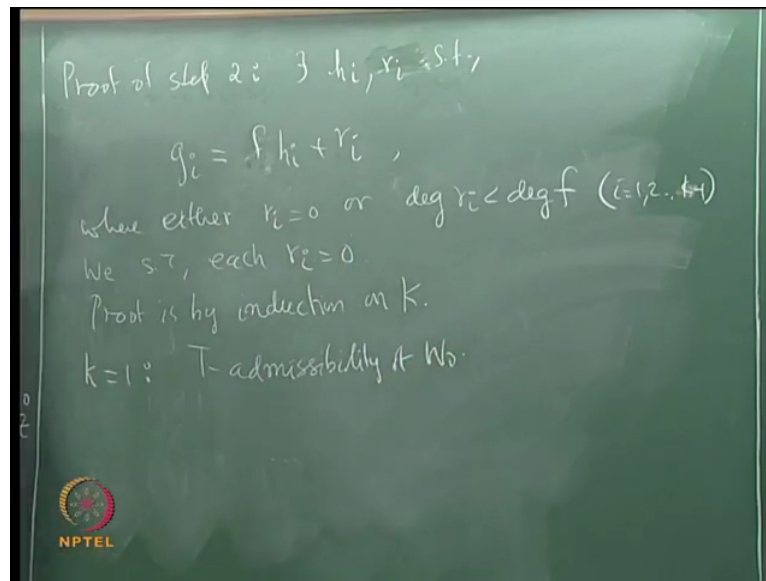 Proof of step 2: ∃ hi, ri s.t.,
gi = f hi + ri ,
where either ri = 0 or deg ri < deg f (i=1,2..k-1)
We s.t, each ri = 0.
Proof is by induction on k.
k=1: T-admissibility of W0.
NPTEL